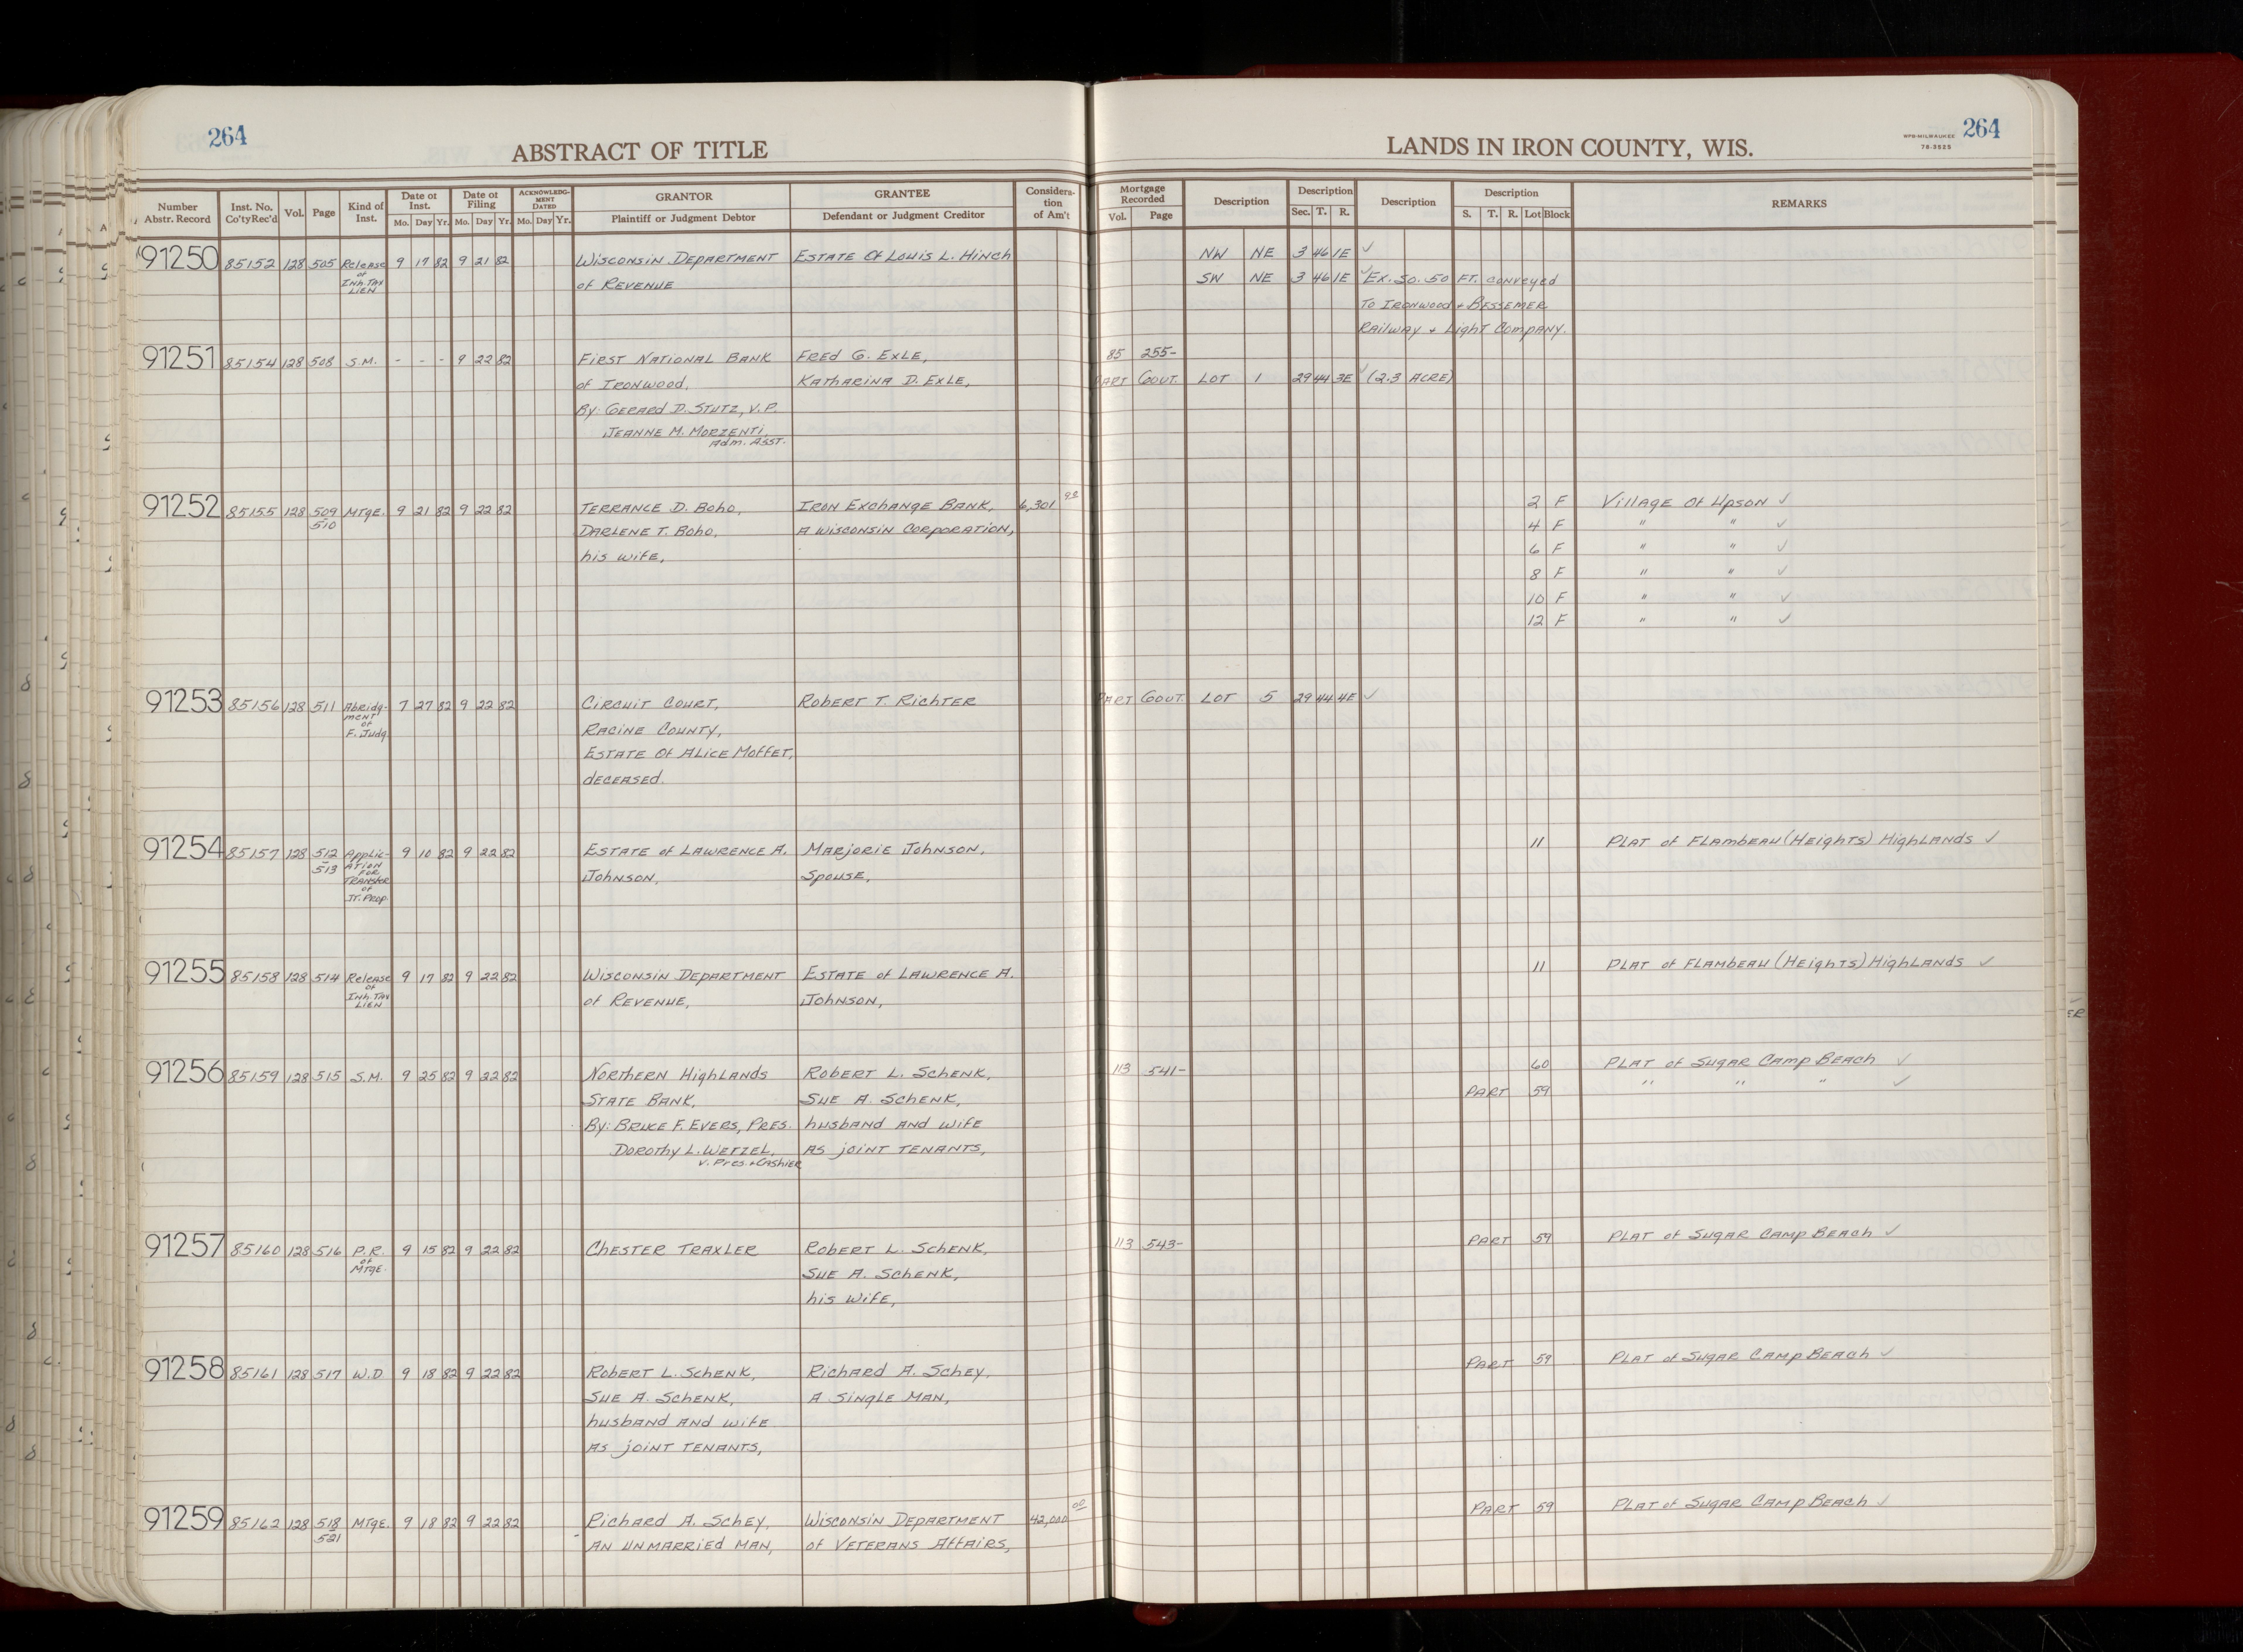 264
ABSTRACT OF TITLE
LANDS IN IRON COUNTY, WIS.
WPB-MILWAUKEE
78-3525
264
Number Abstr. Record | Inst. No. Co'ty Rec'd | Vol. | Page | Kind of Inst. | Date of Inst. Mo. Day Yr. | Date of Filing Mo. Day Yr. | ACKNOWLEDGMENT DATED Mo. Day Yr. | GRANTOR Plaintiff or Judgment Debtor | GRANTEE Defendant or Judgment Creditor | Consideration of Am't | Mortgage Recorded Vol. Page | Description | Description Sec. T. R. | Description | Description S. T. R. Lot Block | REMARKS
91250 85152 128 505 Release 9 17 82 9 21 82 Wisconsin Department Estate of Louis L. Hinch NW NE 3 46 1E ✓
of Inh. Tax Lien of Revenue SW NE 3 46 1E ✓ Ex. So. 50 FT. conveyed
To Ironwood + Bessemer
Railway + Light Company.
91251 85154 128 508 S.M. - - - 9 22 82 First National Bank Fred G. Exle, 85 255-
of Ironwood, Katharina D. Exle, PART GOVT. LOT 1 29 44 3E ✓ (2.3 ACRE)
By: Gerard D. Stutz, V.P.
Jeanne M. Morzenti,
Adm. Asst.
91252 85155 128 509 Mtge. 9 21 82 9 22 82 Terrance D. Boho, Iron Exchange Bank, 6,301 98 2 F Village of Upson ✓
510 Darlene T. Boho, A Wisconsin Corporation, 4 F " " ✓
his wife, 6 F " " ✓
8 F " " ✓
10 F " " ✓
12 F " " ✓
91253 85156 128 511 Abridg- 7 27 82 9 22 82 Circuit Court, Robert T. Richter PART GOVT. LOT 5 29 44 4E ✓
ment of F. Judg. Racine County,
Estate of Alice Moffet,
deceased.
91254 85157 128 512 Applic- 9 10 82 9 22 82 Estate of Lawrence A. Marjorie Johnson, 11 Plat of Flambeau (Heights) Highlands ✓
513 ation for Transfer of Jt. Prop. Johnson, Spouse,
91255 85158 128 514 Release 9 17 82 9 22 82 Wisconsin Department Estate of Lawrence A. 11 Plat of Flambeau (Heights) Highlands ✓
of Inh. Tax Lien of Revenue, Johnson,
91256 85159 128 515 S.M. 9 25 82 9 22 82 Northern Highlands Robert L. Schenk, 113 541- 60 Plat of Sugar Camp Beach ✓
State Bank, Sue A. Schenk, PART 59 " " " ✓
By: Bruce F. Evers, Pres. husband and wife
Dorothy L. Wetzel, as joint tenants,
V. Pres. + Cashier
91257 85160 128 516 P.R. 9 15 82 9 22 82 Chester Traxler Robert L. Schenk, 113 543- PART 59 Plat of Sugar Camp Beach ✓
of Mtge. Sue A. Schenk,
his wife,
91258 85161 128 517 W.D 9 18 82 9 22 82 Robert L. Schenk, Richard A. Schey, PART 59 Plat of Sugar Camp Beach ✓
Sue A. Schenk, A Single Man,
husband and wife
as joint tenants,
91259 85162 128 518 Mtge. 9 18 82 9 22 82 Richard A. Schey, Wisconsin Department 42,000 00 PART 59 Plat of Sugar Camp Beach ✓
521 an unmarried man, of Veterans Affairs,